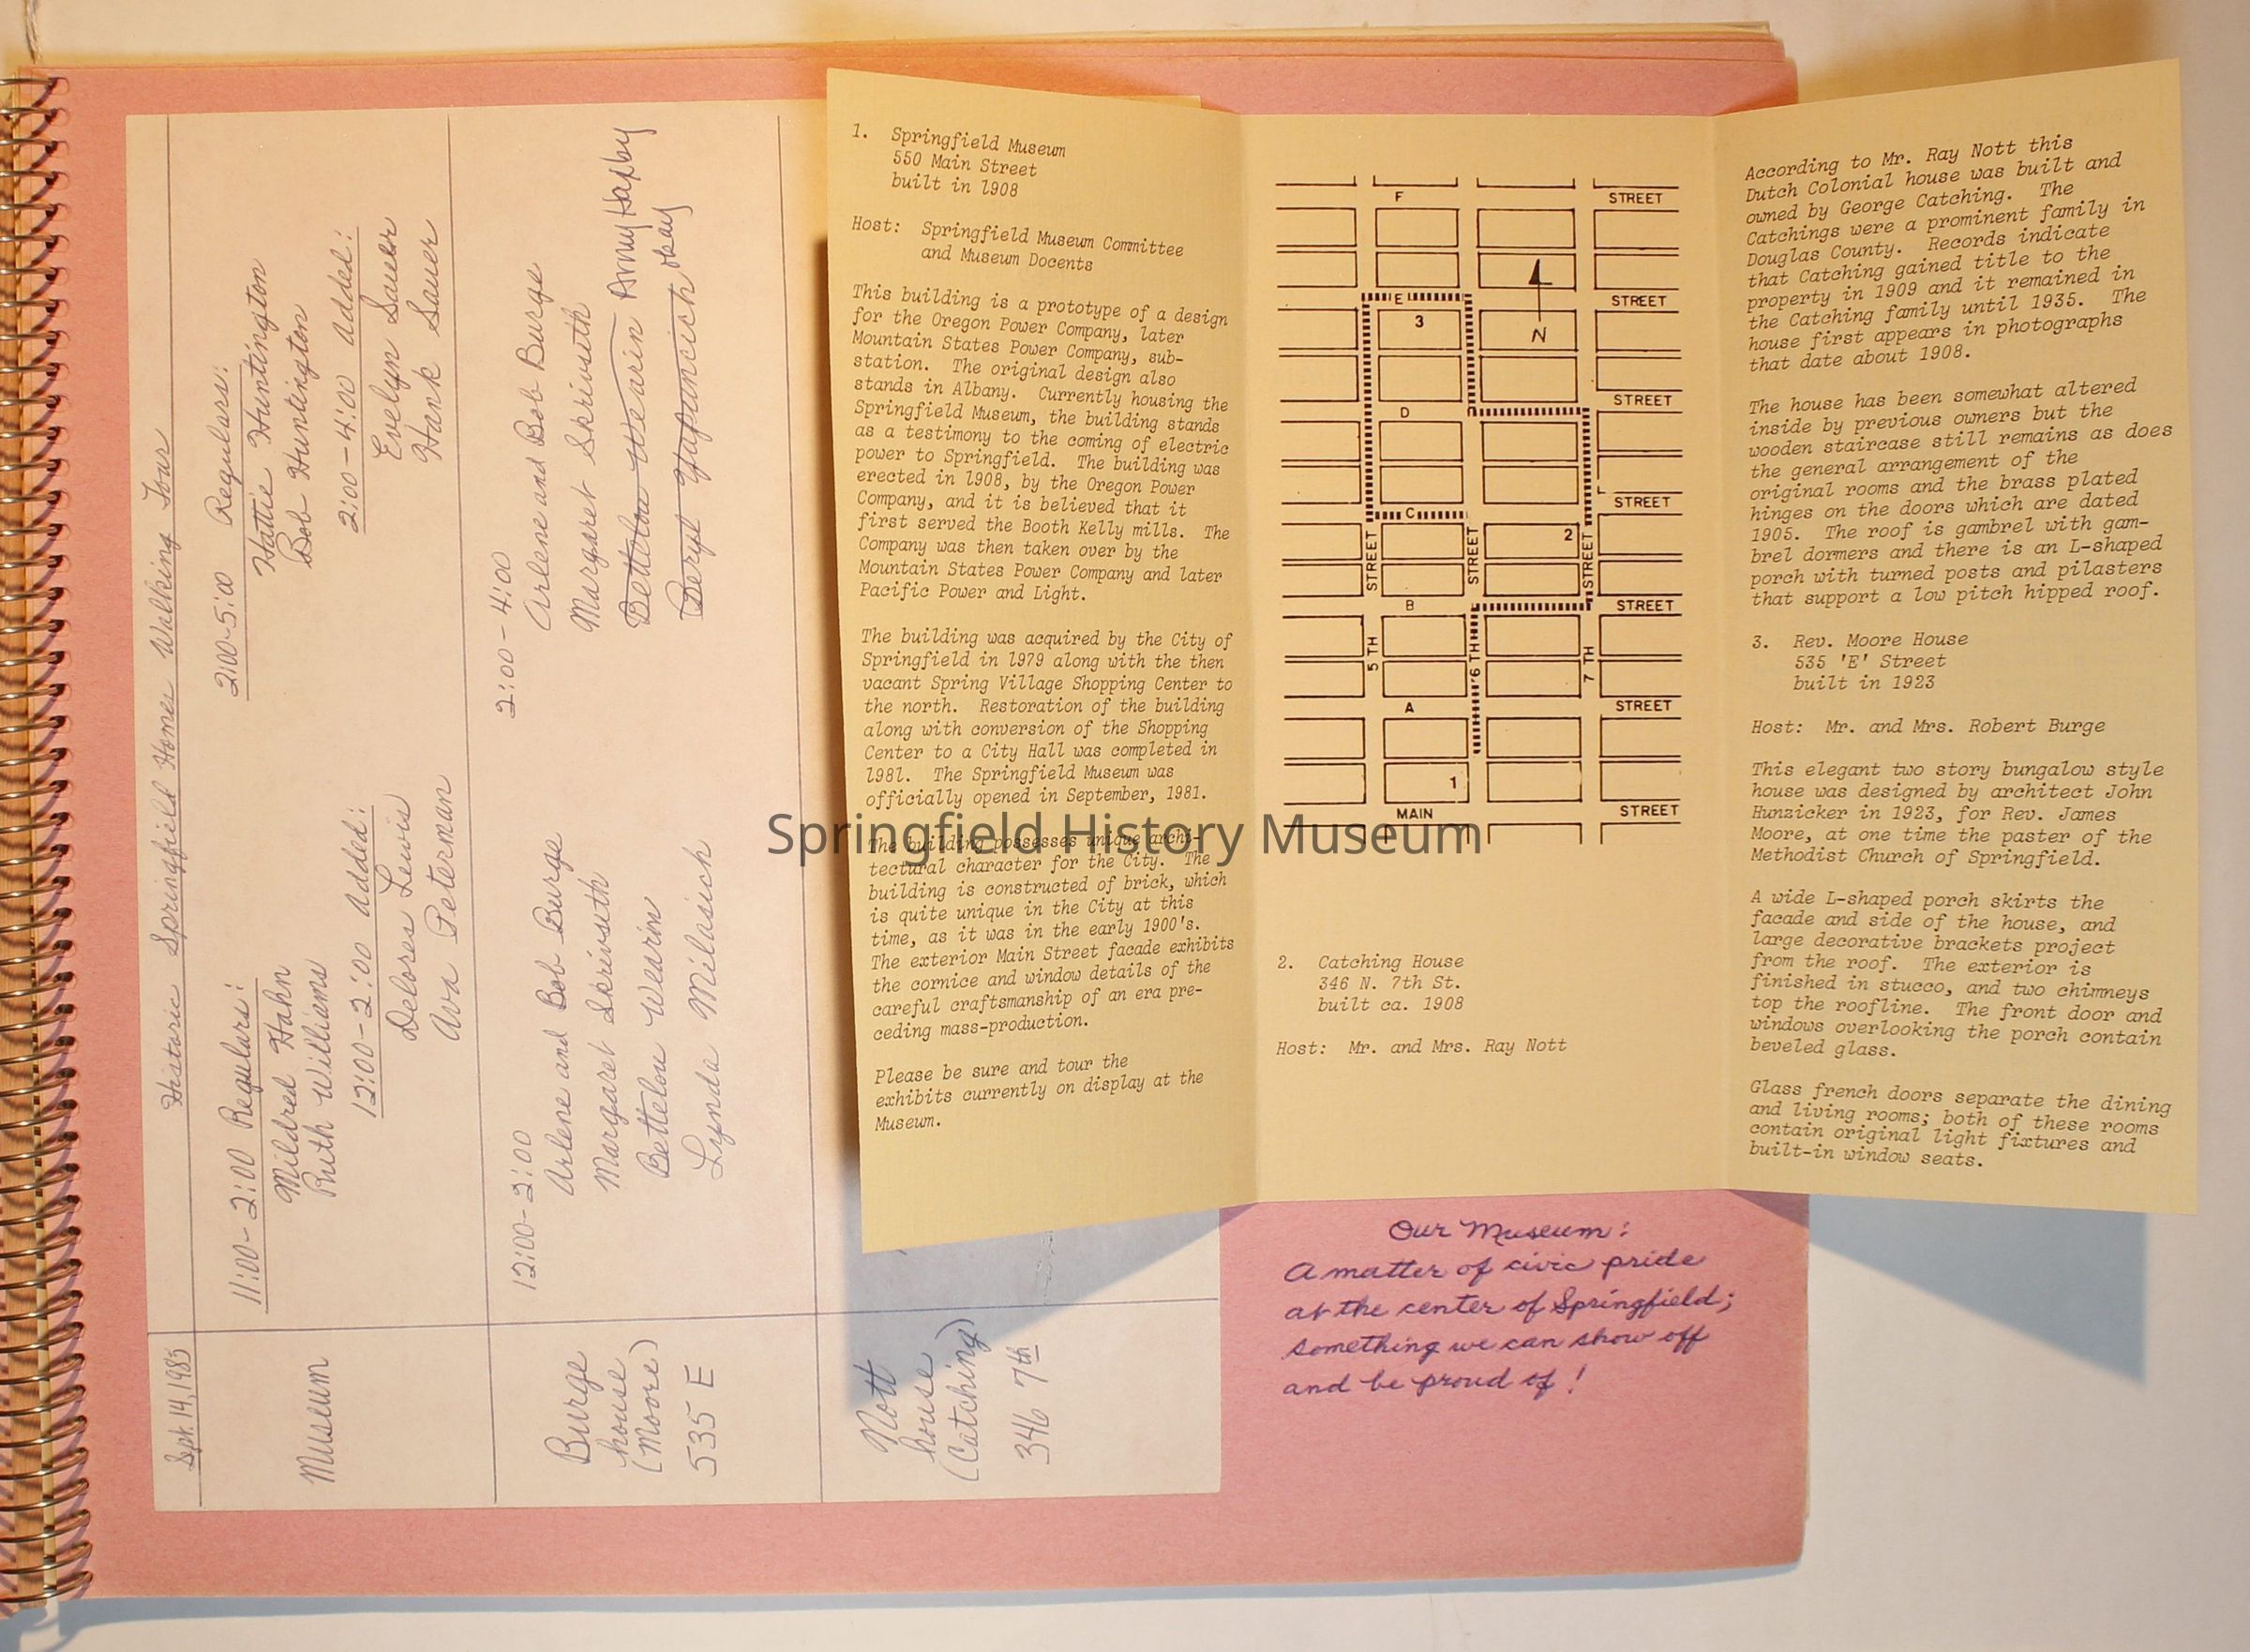 Historic Springfield Homes Walking Tour
Sept. 14, 1985
Museum
11:00-2:00 Regulars:
Mildred Hahn
Ruth Williams
12:00-2:00 Added:
Delores Lewis
Ava Peterman
2:00-5:00 Regulars:
Hattie Huntington
Bob Huntington
2:00-4:00 Added:
Evelyn Sauer
Hank Sauer
Burge
house
(Moore)
535 E
12:00-2:00
Arlene and Bob Burge
Margaret Skrivseth
Bettelou Wearin
Lynda Milasich
2:00-4:00
Arlene and Bob Burge
Margaret Skrivseth
Bettelou Wearin
Beryl
okay
Nott
house
(Catching)
346 7th
1. Springfield Museum
550 Main Street
built in 1908
Host: Springfield Museum Committee
and Museum Docents
This building is a prototype of a design
for the Oregon Power Company, later
Mountain States Power Company, sub-
station. The original design also
stands in Albany. Currently housing the
Springfield Museum, the building stands
as a testimony to the coming of electric
power to Springfield. The building was
erected in 1908, by the Oregon Power
Company, and it is believed that it
first served the Booth Kelly mills. The
Company was then taken over by the
Mountain States Power Company and later
Pacific Power and Light.
The building was acquired by the City of
Springfield in 1979 along with the then
vacant Spring Village Shopping Center to
the north. Restoration of the building
along with conversion of the Shopping
Center to a City Hall was completed in
1981. The Springfield Museum was
officially opened in September, 1981.
The building possesses unique archi-
tectural character for the City. The
building is constructed of brick, which
is quite unique in the City at this
time, as it was in the early 1900's.
The exterior Main Street facade exhibits
the cornice and window details of the
careful craftsmanship of an era pre-
ceding mass-production.
Please be sure and tour the
exhibits currently on display at the
Museum.
F STREET
E STREET
3
N
D STREET
C STREET
2
5 TH STREET
6 TH STREET
7 TH STREET
B STREET
A STREET
1
MAIN STREET
2. Catching House
346 N. 7th St.
built ca. 1908
Host: Mr. and Mrs. Ray Nott
According to Mr. Ray Nott this
Dutch Colonial house was built and
owned by George Catching. The
Catchings were a prominent family in
Douglas County. Records indicate
that Catching gained title to the
property in 1909 and it remained in
the Catching family until 1935. The
house first appears in photographs
that date about 1908.
The house has been somewhat altered
inside by previous owners but the
wooden staircase still remains as does
the general arrangement of the
original rooms and the brass plated
hinges on the doors which are dated
1905. The roof is gambrel with gam-
brel dormers and there is an L-shaped
porch with turned posts and pilasters
that support a low pitch hipped roof.
3. Rev. Moore House
535 'E' Street
built in 1923
Host: Mr. and Mrs. Robert Burge
This elegant two story bungalow style
house was designed by architect John
Hunzicker in 1923, for Rev. James
Moore, at one time the paster of the
Methodist Church of Springfield.
A wide L-shaped porch skirts the
facade and side of the house, and
large decorative brackets project
from the roof. The exterior is
finished in stucco, and two chimneys
top the roofline. The front door and
windows overlooking the porch contain
beveled glass.
Glass french doors separate the dining
and living rooms; both of these rooms
contain original light fixtures and
built-in window seats.
Our Museum:
A matter of civic pride
at the center of Springfield;
something we can show off
and be proud of!
Springfield History Museum